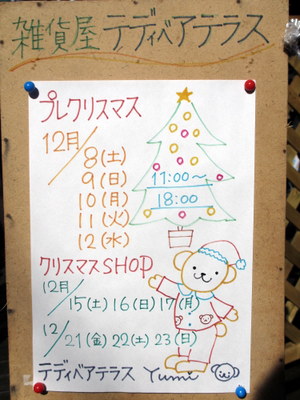 雑貨屋 テディベアテラス
プレクリスマス
12月/8(土)
9(日)
10(月)
11(火)
12(水)
11:00〜
18:00
クリスマスSHOP
12月/15(土)16(日)17(月)
12/21(金)22(土)23(日)
テディベアテラス Yumi